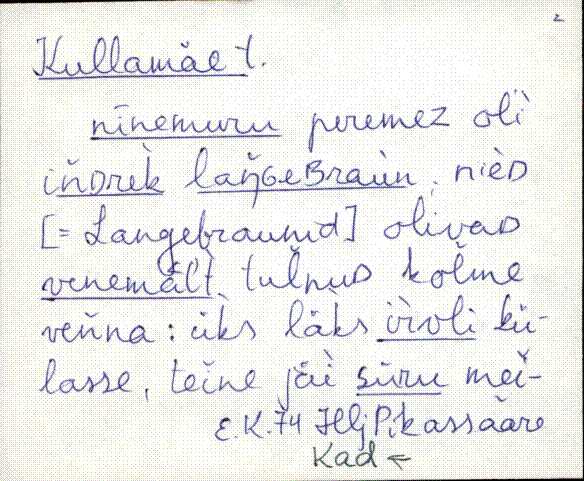 2
Kullamäe t.
nīnemuru peremez oĺi
iǹDrèk laǹ̆GeBraùn, nièD
[= Langebraunid] olivaD
venemāl̀t tuĺnuD kol̆me
veǹna: ùks läks ìroli kü-
lasse, teĭne jäì sūru meì-
E.K.74 Hlj Pikassaare
Kad ←